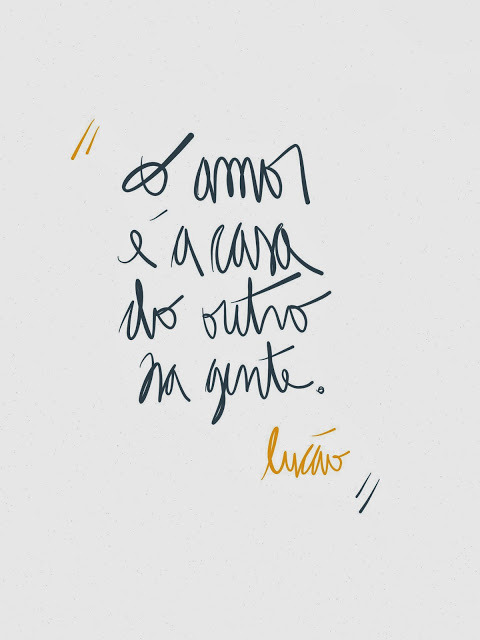 "
o amor
é a casa
do outro
na gente.
lucão
"